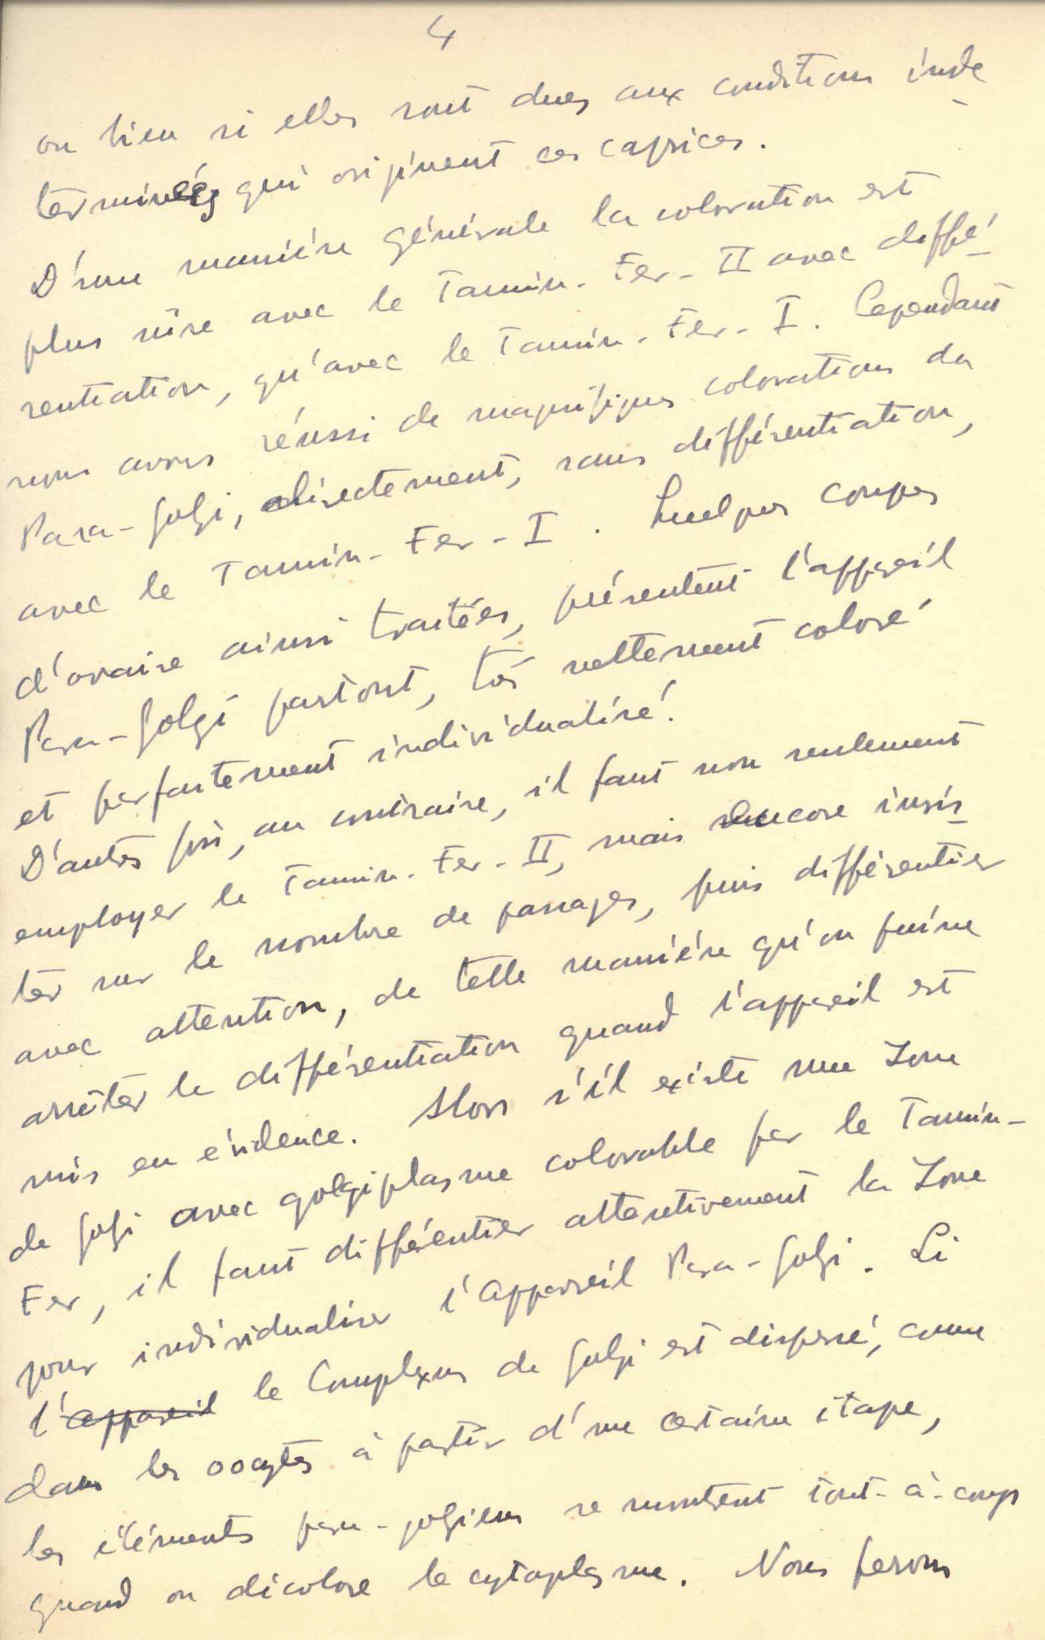 4
ou bien si elles sont dues aux conditions indé-
terminées qui originent ces caprices.
D'une manière générale la coloration est
plus sûre avec le Tannin-Fer-II avec diffé-
rentiation, qu'avec le Tannin-Fer-I. Cependant
nous avons réussi de magnifiques colorations du
Para-Golgi, directement, sans différentiation,
avec le Tannin-Fer-I. Quelques coupes
d'ovaire ainsi traitées, présentent l'appareil
Para-Golgi partout, très nettement coloré
et parfaitement individualisé.
D'autres fois, au contraire, il faut non seulement
employer le Tannin-Fer-II, mais encore insis-
ter sur le nombre de passages, puis différentier
avec attention, de telle manière qu'on puisse
arrêter la différentiation quand l'appareil est
mis en évidence. Alors s'il existe une Zone
de Golgi avec golgiplasme colorable par le Tannin-
Fer, il faut différentier attentivement la Zone
pour individualiser l'appareil Para-Golgi. Si
l'appareil le Complexus de Golgi est dispersé, comme
dans les oocytes à partir d'une certaine étape,
les éléments para-golgiens se montrent tout-à-coup
quand on décolore le cytoplasme. Nous ferons